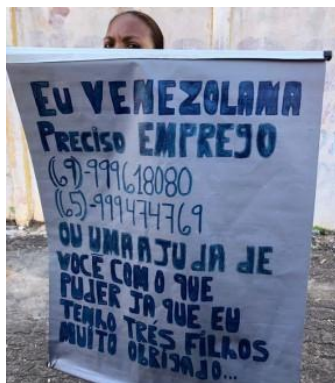 EU VENEZOLANA
PRECISO EMPREGO
(69)-999618080
(65)-999474769
OU UMA AJUDA DE
VOCÊ COM O QUE
PUDER JA QUE EU
TENHO TRÊS FILHOS
MUITO OBRIGADO...